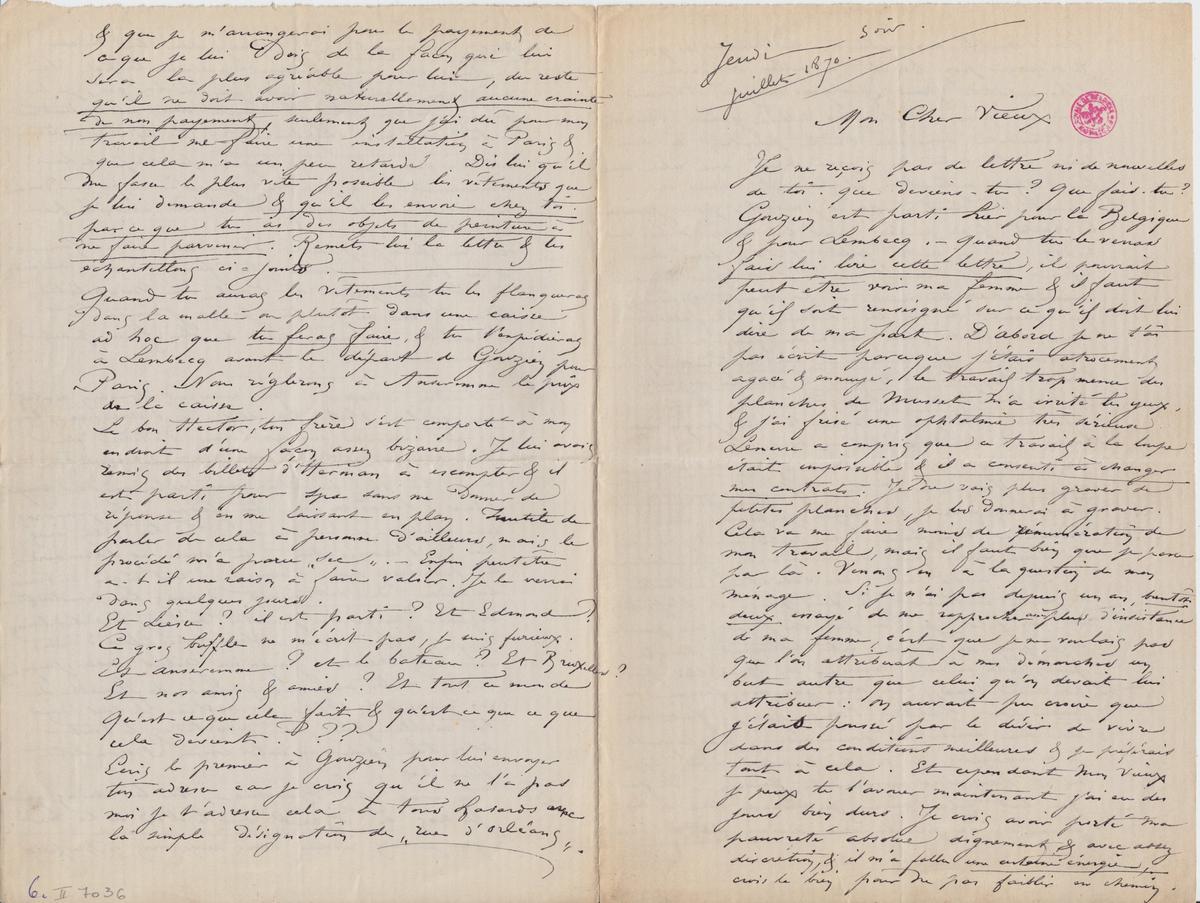 Jeudi soir.
juillet 1870.
Mon Cher Vieux
Je ne reçois pas de lettre ni de nouvelles
de toi. que deviens-tu? Que fais-tu?
Gouzien est parti hier pour la Belgique
& pour Lembecq. – Quand tu le verras
fais lui lire cette lettre, il pourrait
peut etre voir ma femme & il faut
qu'il soit renseigné sur ce qu'il doit lui
dire de ma part. D'abord je ne t'ai
pas écrit parceque j'étais atrocement
agacé & ennuyé, le travail trop menu des
planches de Musset m'a irrité les yeux,
& j'ai frisé une ophtalmie très sérieuse
Lemerre a compris que ce travail à la loupe
était impossible & il a consenti à changer
mes contrats. Je ne vais plus graver de
petites planches, je les donnerai à graver.
Cela va me faire moins de rémunération de
mon travail, mais il faut bien que je passe
par là. Venons en à la question de mon
ménage. Si je n'ai pas depuis un an, bientôt
deux essayé de me rapprocher plus d'insistance
de ma femme, c'est que je ne voulais pas
que l'on attribuat à mes démarches un
but autre que celui qu'on devait lui
attribuer: on aurait pu croire que
j'étais poussé par le désir de vivre
dans des conditions meilleures & je préférais
tout à cela. Et cependant mon vieux
je peux te l'avouer maintenant j'ai eu des
jours bien durs. Je crois avoir porté ma
pauvreté absolue dignement & avec assez
discrétion, & il m'a fallu une certaine énergie,
crois le bien pour ne pas faiblir en chemin.
& que je m'arrangerai pour le payement de
ce que je lui dois de la façon qui lui
sera la plus agréable pour lui, du reste
qu'il ne doit avoir naturellement aucune crainte
de non payement, seulement que j'ai du pour mon
travail me faire une installation à Paris &
que cela m'a un peu retardé. Dis lui qu'il
me fasse le plus vite possible les vêtements que
je lui demande & qu'il les envoie chez toi.
parce que tu as des objets de peinture à
me faire parvenir. Remets lui la lettre & les
échantillons ci-joints.
Quand tu auras les vêtements tu les flanqueras
dans la malle ou plutôt dans une caisse
ad hoc que tu feras faire, & tu l'expédieras
à Lembecq avant le départ de Gouzien pour
Paris. Nous réglerons à Anseremme le prix
de la caisse.
Le bon Hector, ton frère s'est comporté à mon
endroit d'une façon assez bizarre. Je lui avais
remis des billets d'Harman à escompter & il
est parti pour Spa sans me donner de
réponse & en me laissant en plan. Inutile de
parler de cela à personne d'ailleurs, mais le
procédé m'a paru „sec". – Enfin peut être
a-t-il une raison à faire valoir. Je le verrai
dans quelques jours.
Et Liesse? il est parti? Et Edmond?
Ce gros buffle ne m'écrit pas, je suis furieux.
Et Anseremme? et le bateau? Et Bruxelles?
Et nos amis & amies? Et tout ce monde
qu'est ce que cela fait & qu'est ce que ce que
cela devient. ???
Ecris le premier à Gouzien pour lui envoyer
ton adresse car je crois qu'il ne l'a pas
moi je t'adresse cela à tous hasards avec
la simple désignation de „rue d'Orléans".
6. II 7036